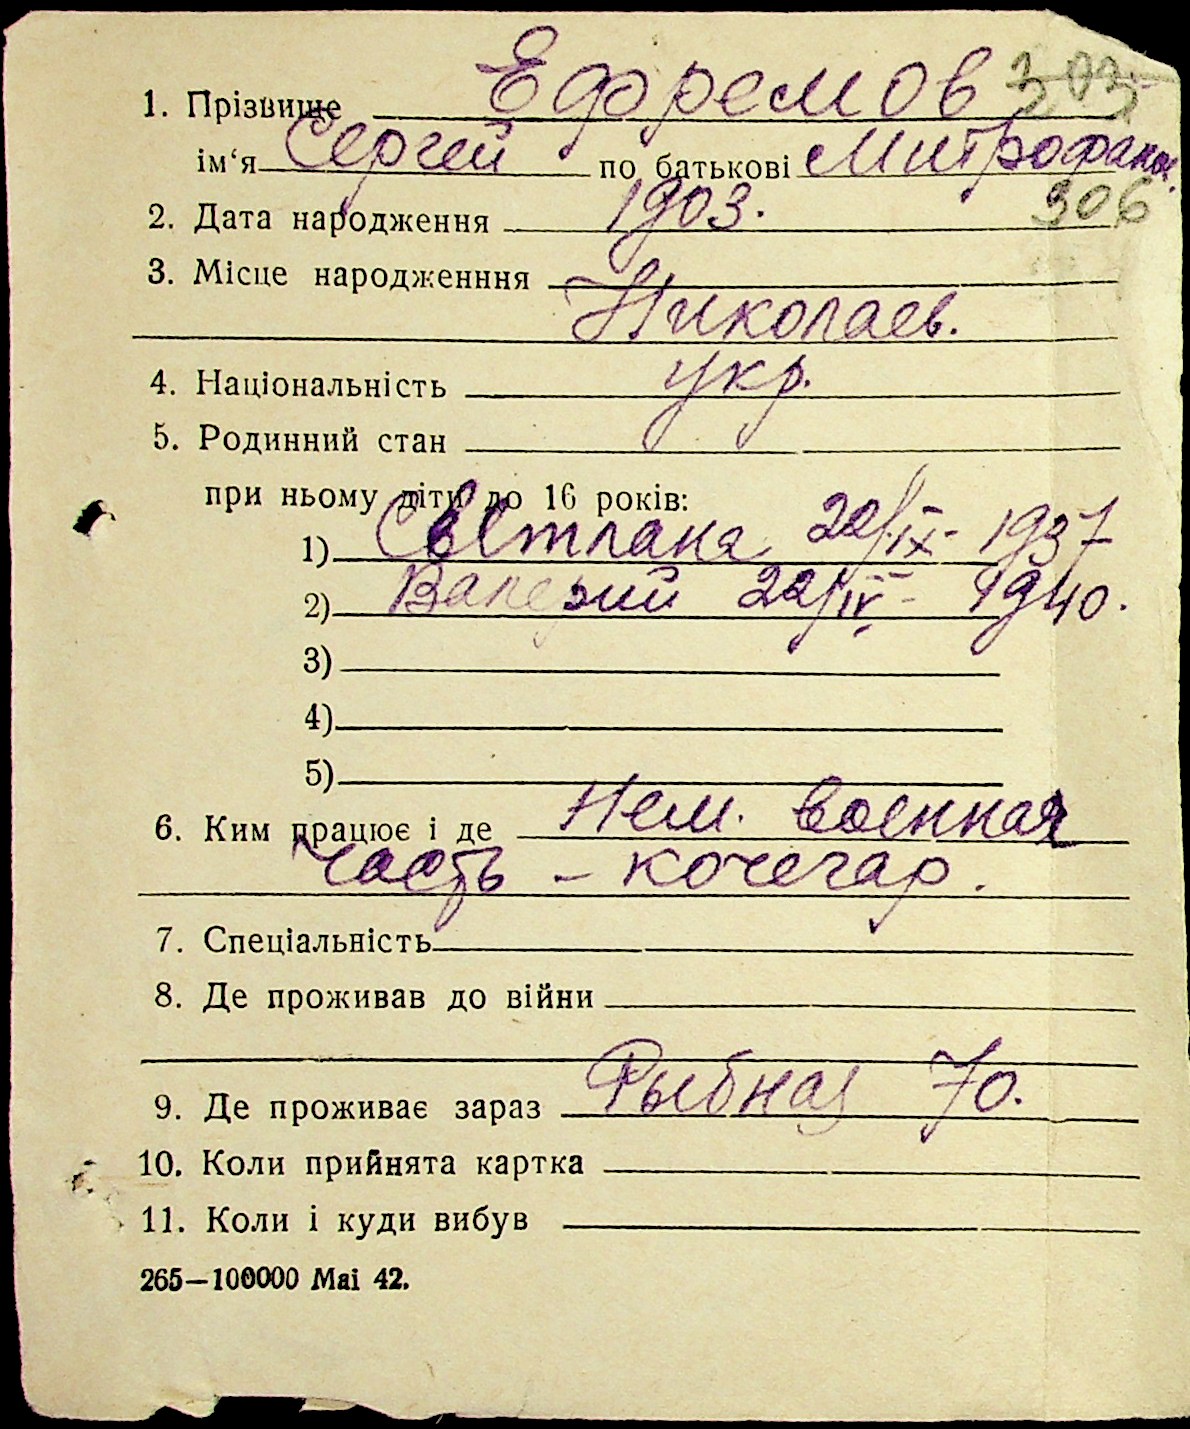 1. Прізвище Ефремов 303
ім‘я Сергей по батькові Митрофанов.
2. Дата народження 1903. 306
3. Місце народженння
Николаев.
4. Національність укр.
5. Родинний стан
при ньому діти до 16 років:
1) Світлана 22/IX- 1937
2) Валерий 22/IV- 1940.
3)
4)
5)
6. Ким працює і де Нем. военная
часть - кочегар.
7. Спеціальність
8. Де проживав до війни
9. Де проживає зараз Рыбная 70.
10. Коли прийнята картка
11. Коли і куди вибув
265—100000 Mai 42.